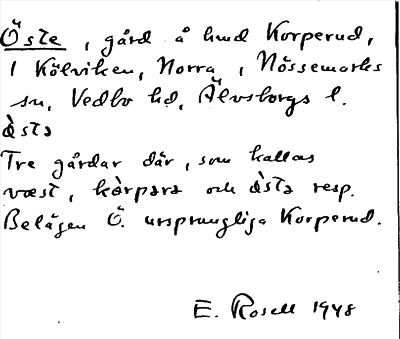 Öste, gård å hmd Korperud,
i Kölviken, Norra, Nössemarks
sn, Vedbo hd, Älvsborgs l.
ə̀stə
Tre gårdar där, som kallas
væst, kòrpərə och ə̀stə resp.
Belägen Ö. ursprungliga Korperud.
E. Rosell 1948